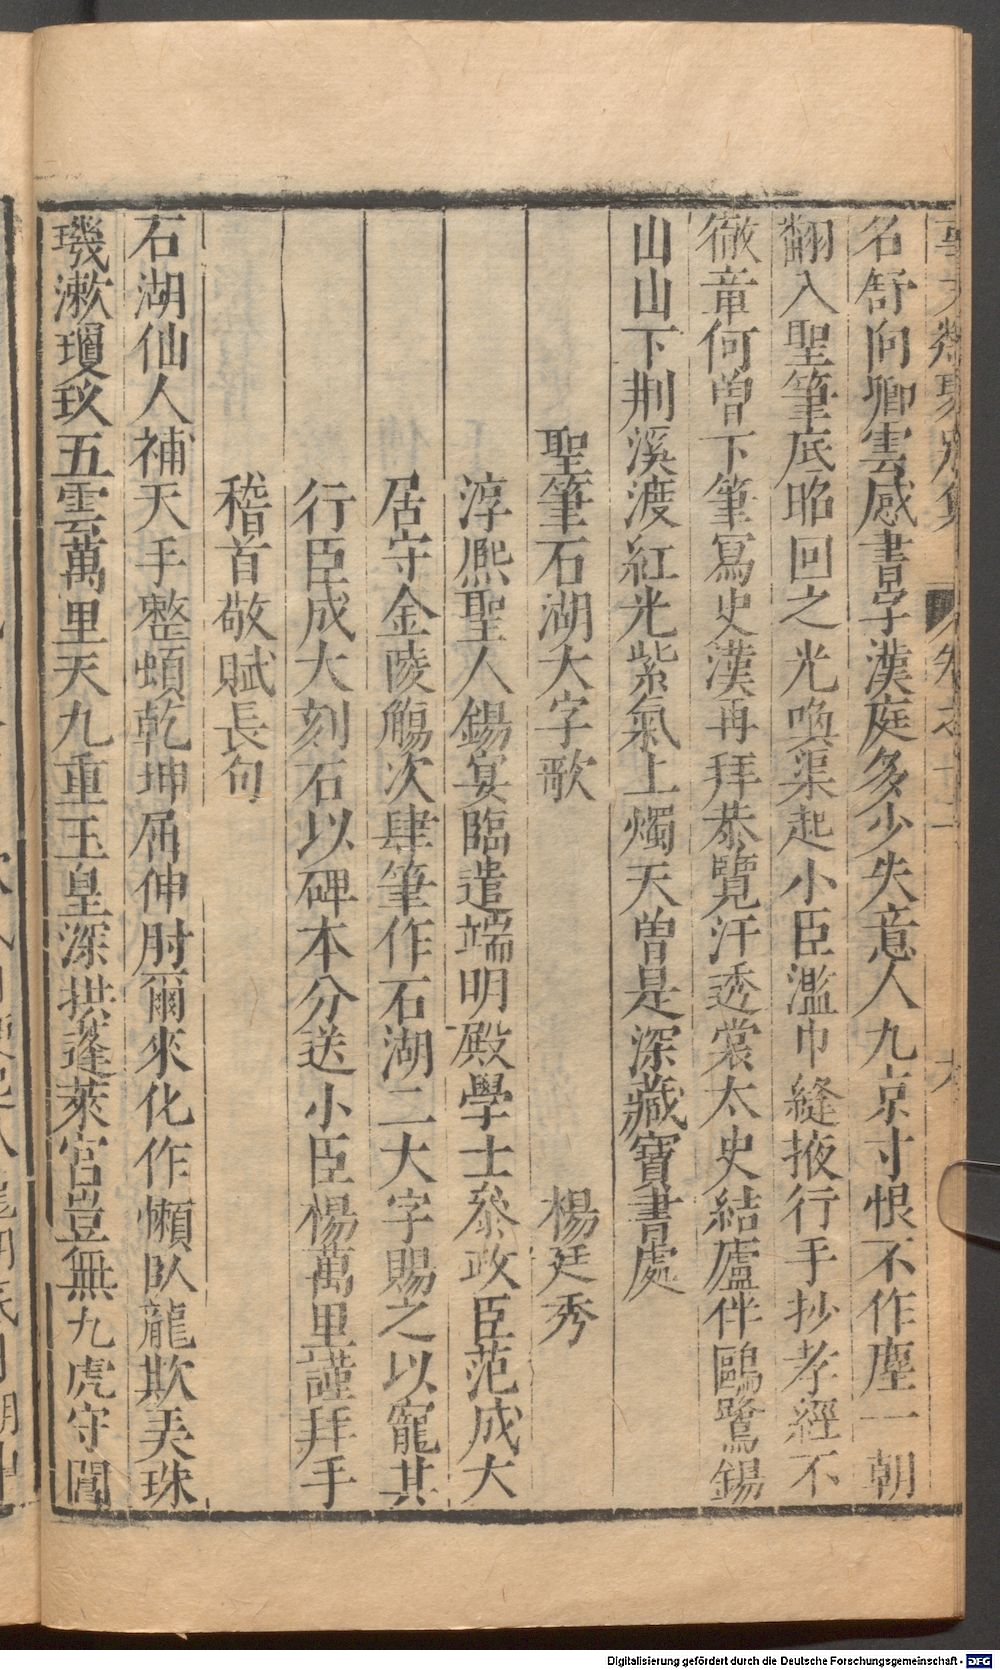 名舒向卿雲感書字漢庭多少失意人九京寸恨不作塵一朝
翻入聖筆底昭回之光喚渠起小臣濫巾縫掖行手抄孝經不
徹章何曾下筆寫史漢再拜恭覽汗透裳太史結廬伴鷗鷺錫
山山下荆溪渡紅光紫氣上燭天曾是深藏寶書處
聖筆石湖大字歌 楊廷秀
淳熈聖人錫宴臨遣端明殿學士叅政臣范成大
居守金陵觴次肆筆作石湖二大字賜之以寵其
行臣成大刻石以碑本分送小臣楊萬里謹拜手
稽首敬賦長句
石湖仙人補天手整頓乾坤屈伸肘爾來化作懶臥龍欺芺珠
璣漱瓊玖五雲萬里天九重玉皇深拱蓬萊宮豈無九虎守閶
Digitalisierung gefördert durch die Deutsche Forschungsgemeinschaft - DFG